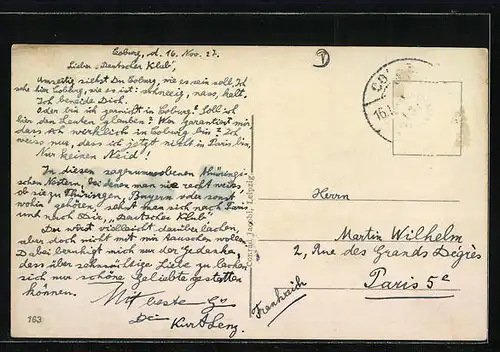 Coburg, d. 16. Nov. 27.
Lieber "Deutscher Klub",
Umseitig siehst Du Coburg, wie es sein soll. Ich
sehe hier Coburg, wie es ist: schneeig, nass, kalt.
Ich beneide Dich.
Oder bin ich garnicht in Coburg? Soll ich
hier den Leuten glauben? Wer garantiert mir,
dass ich wirklich in Coburg bin? Ich
weiss nur, dass ich jetzt nicht in Paris bin,
Nur keinen Neid!
In diesen sagenumwobenen Thüringi-
schen Nestern, bei denen man nie recht weiss,
ob sie zu Thüringen, Bayern oder sonst
wohin gehören, sehnt man sich nach Paris
und nach Dir, "Deutscher Klub".
Du wirst vielleicht darüber lachen,
aber doch nicht mit mir tauschen wollen.
Dabei beruhigt mich nur der Gedanke,
dass über sehnsüchtige Liebe zu lachen
sich nur schöne Geliebte gestatten
können.
Mit beste
Dein
Kurt Lenz.
163
Conrad Leipzig
T
CO
16.
Herrn
Martin Wilhelm
2, Rue des Grands Degrés
Paris 5e
Frankreich